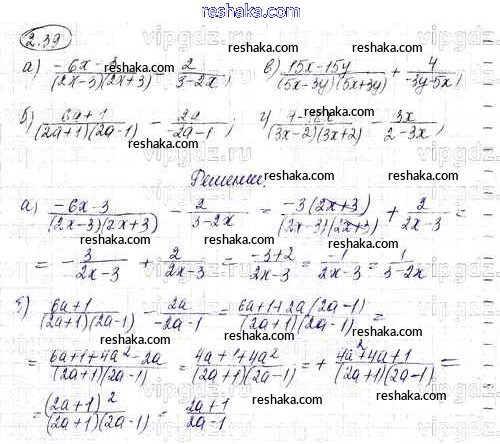 reshaka.com
2.39
reshaka.com reshaka.com
а) (-6x-3)/((2x-3)(2x+3)) - 2/(3-2x); в) (15x-15y)/((5x-3y)(5x+3y)) + 4/(-3y-5x);
reshaka.com reshaka.com
б) (6a+1)/((2a+1)(2a-1)) - 2a/(-2a-1); /((3x-2)(3x+2)) - 3x/(2-3x);
reshaka.com reshaka.com
Решение:
а) (-6x-3)/((2x-3)(2x+3)) - 2/(3-2x) = (-3(2x+3))/((2x-3)(2x+3)) + 2/(2x-3) =
reshaka.com reshaka.com
= - 3/(2x-3) + 2/(2x-3) = (-3+2)/(2x-3) = (-1)/(2x-3) = 1/(3-2x)
reshaka.com reshaka.com
б) (6a+1)/((2a+1)(2a-1)) - 2a/(-2a-1) = (6a+1+2a(2a-1))/((2a+1)(2a-1)) =
reshaka.com reshaka.com
= (6a+1+4a²-2a)/((2a+1)(2a-1)) = (4a+1+4a²)/((2a+1)(2a-1)) = + (4a²+4a+1)/((2a+1)(2a-1)) =
reshaka.com reshaka.com
= (2a+1)²/((2a+1)(2a-1)) = (2a+1)/(2a-1)
reshaka.com